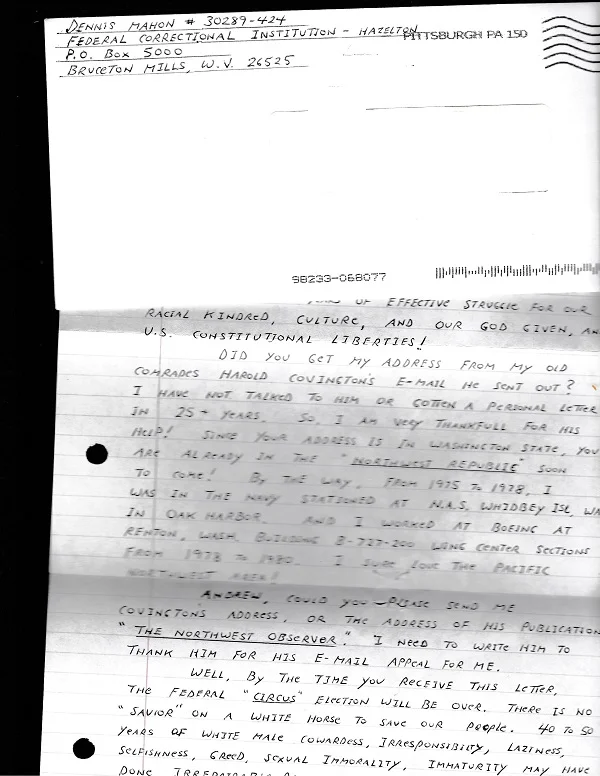 DENNIS MAHON # 30289-424
FEDERAL CORRECTIONAL INSTITUTION - HAZELTON
PITTSBURGH PA 150
P.O. BOX 5000
BRUCETON MILLS, W.V. 26525
98233-068077
OF EFFECTIVE STRUGGLE FOR OUR
RACIAL KINDRED, CULTURE, AND OUR GOD GIVEN, AN
U.S. CONSTITUTIONAL LIBERTIES!
DID YOU GET MY ADDRESS FROM MY OLD
COMRADES HAROLD COVINGTON'S E-MAIL HE SENT OUT?
I HAVE NOT TALKED TO HIM OR GOTTEN A PERSONAL LETTER
IN 25+ YEARS. SO, I AM VERY THANKFULL FOR HIS
HELP! SINCE YOUR ADDRESS IS IN WASHINGTON STATE, YOU
ARE ALREADY IN THE "NORTHWEST REPUBLIC" SOON
TO COME! BY THE WAY, FROM 1975 TO 1978, I
WAS IN THE NAVY STATIONED AT N.A.S. WHIDBEY ISL, WA
IN OAK HARBOR. AND I WORKED AT BOEING AT
RENTON, WASH. BUILDING B-727-200 WING CENTER SECTIONS
FROM 1978 TO 1980. I SURE LOVE THE PACIFIC
NORTHWEST AREA!
ANDREW, COULD YOU PLEASE SEND ME
COVINGTON'S ADDRESS, OR THE ADDRESS OF HIS PUBLICATION
"THE NORTHWEST OBSERVER". I NEED TO WRITE HIM TO
THANK HIM FOR HIS E-MAIL APPEAL FOR ME.
WELL, BY THE TIME YOU RECEIVE THIS LETTER,
THE FEDERAL "CIRCUS" ELECTION WILL BE OVER. THERE IS NO
"SAVIOR" ON A WHITE HORSE TO SAVE OUR PEOPLE. 40 TO 50
YEARS OF WHITE MALE COWARDESS, IRRESPONSIBILTY, LAZINESS,
SELFISHNESS, GREED, SEXUAL IMMORALITY, IMMATURITY MAY HAVE
DONE